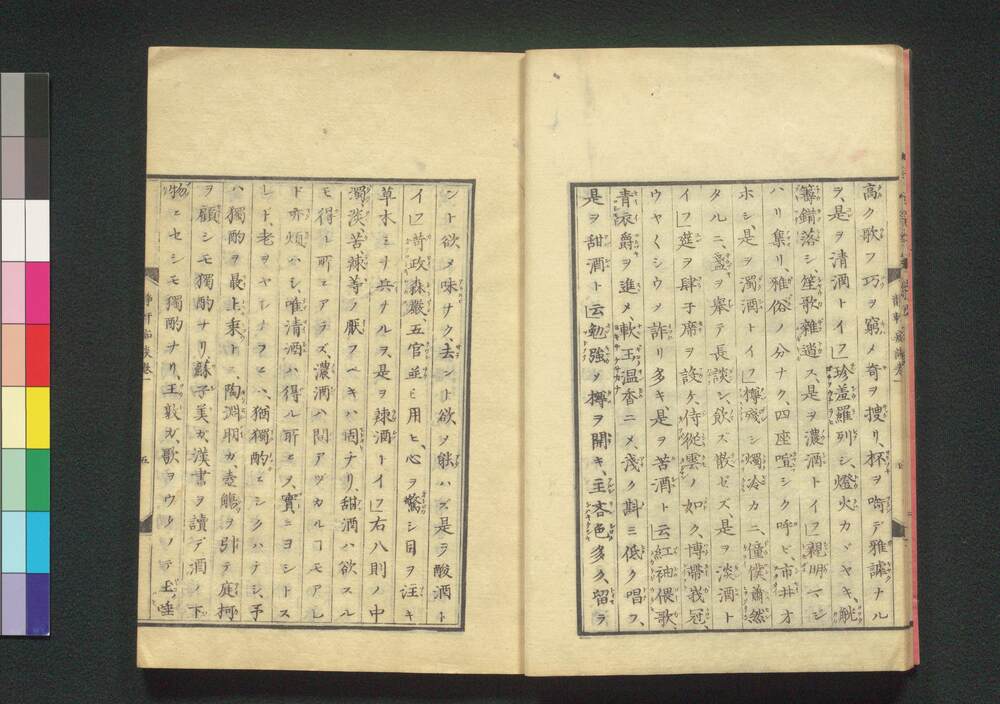 高ク歌フ巧ヲ窮メ奇ヲ捜リ、杯ヲ啣デ雅謔ナル
ヲ、是ヲ清酒トイフ」珍羞羅列シ、燈火カヾヤキ、觥
籌錯落シ、笙歌雜遝ス、是ヲ濃酒トイフ」裎明マジ
ハリ集リ、雅俗ノ分ナク、四座喧シク呼ビ、市井オ
ホシ、是ヲ濁酒トイフ」樽殘シ燭冷カニ、僮僕蕭然
タルニ、盞ヲ擧テ長談シ、飲ズ散ゼズ、是ヲ淡酒ト
イフ」筵ヲ肆テ席ヲ設ケ、侍從雲ノ如ク、博帶峩冠、
ウヤ〱シウメ詐リ多キ是ヲ苦酒ト云」紅袖偎歌、
青衣爵ヲ進メ、軟玉温香ニメ、淺ク斟ミ低ク唱フ、
是ヲ甜酒ト云」勉強メ樽ヲ開キ、主吝色多ク、留ラ
ント欲メ味ナク、去ント欲メ能ハズ是ヲ酸酒ト
イフ」苛政森嚴、五官並ヒ用ヒ、心ヲ驚シ目ヲ注キ
草木ミナ兵ナルヲ、是ヲ辣酒トイフ」右八則ノ中
濁淡苦辣等ノ厭フベキハ固ナリ、甜酒ハ欲スル
モ得ヒ所ニアラズ、濃酒ハ間アヅカルコモアレ
ド亦煩ハシ、唯清酒ハ得ル所ニメ、實ニヨシトス
レド、老ヲヤシナフニハ、猶獨酌ニシクハナシ、手
ハ獨酌ヲ最上乘トシ、陶淵明ガ、壺觴ヲ引テ庭柯
ヲ顧シモ獨酌ナリ、蘇子美ガ、漢書ヲ讀デ酒ノ下
物ニセシモ獨酌ナリ、王敦ガ、歌ヲウタノテ玉唾
五